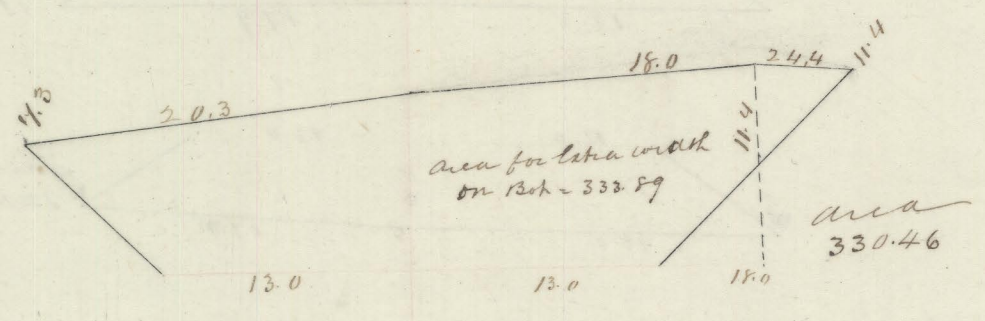 7.3
20.3
18.0
24.4
11.4
11.4
area for Extra width
on Bot = 333.89
area
330.46
13.0
13.0
18.0